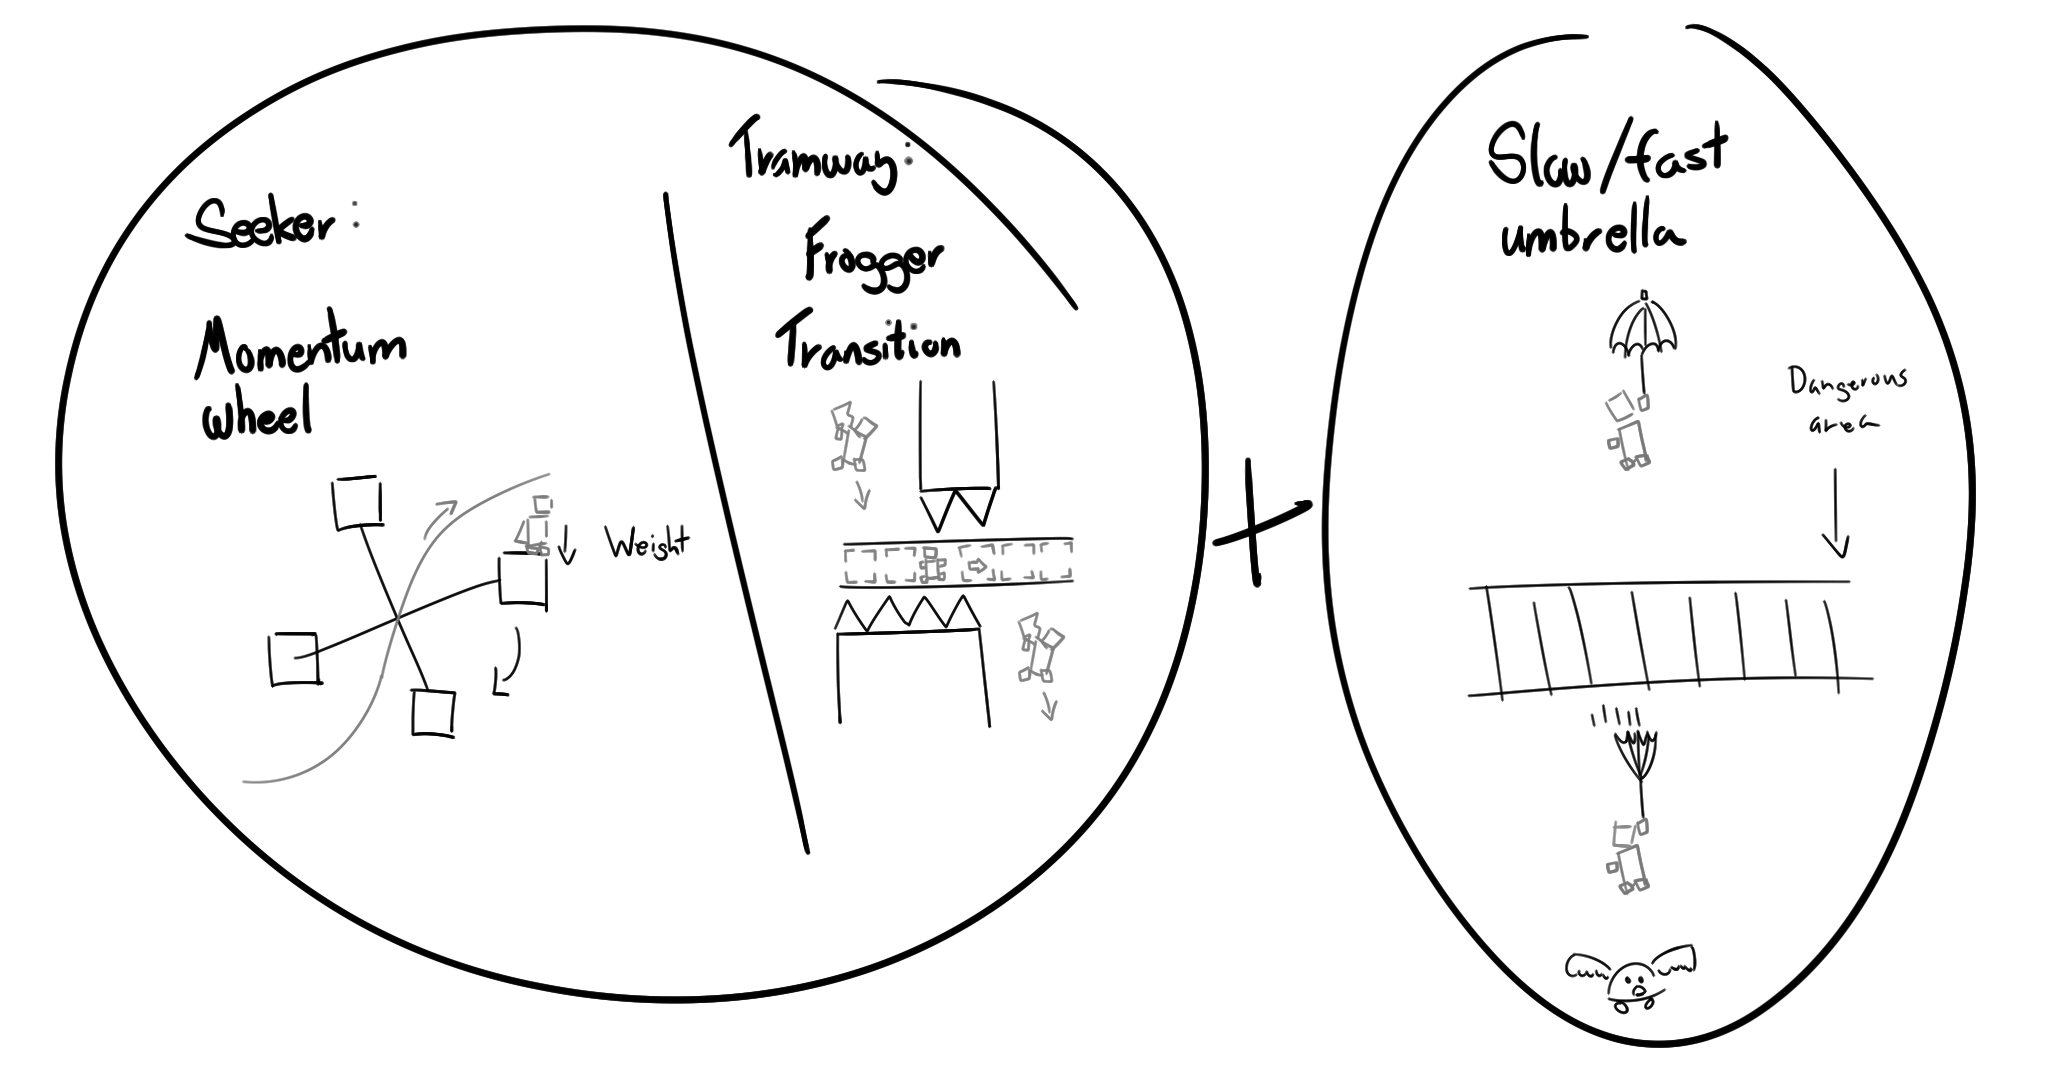 Seeker:
Momentum
wheel
Weight
Tramway:
Frogger
Transition
+
Slow/fast
umbrella
Dangerous
area